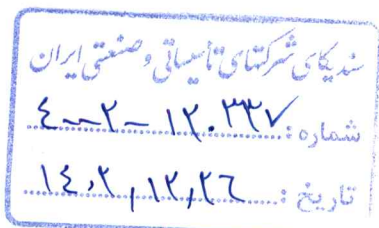 سندیکای شرکتهای تاسیساتی و صنعتی ایران
شماره : ۱۲۰۳۳۷-۲-۴۰۰
تاریخ : ۱۴۰۲,۱۲,۲۶